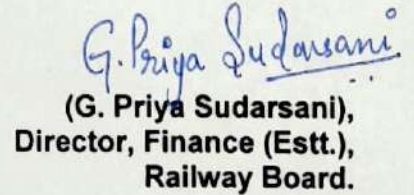 G. Priya Sudarsani
(G. Priya Sudarsani),
Director, Finance (Estt.),
Railway Board.